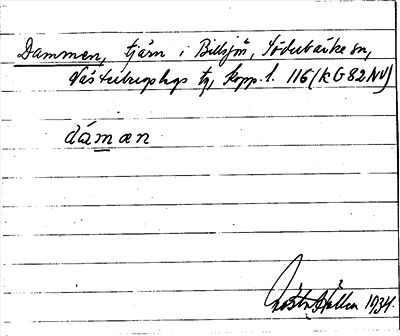 Dammen, tjärn i Billsjö, Söderbärke sn,
Västerbergslags tg, Kopp. l. 116 (KG82NV)
dámæn
Gösta Hallén 1934.